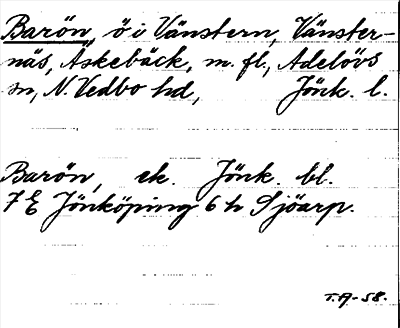 Barön, ö i Vänstern, Vänster-
näs, Askebäck, m. fl., Adelövs
sn, N. Vedbo hd, Jönk. l.
Barön, ek. Jönk. bl.
7 E Jönköping 6 h Sjöarp.
T.A-58.